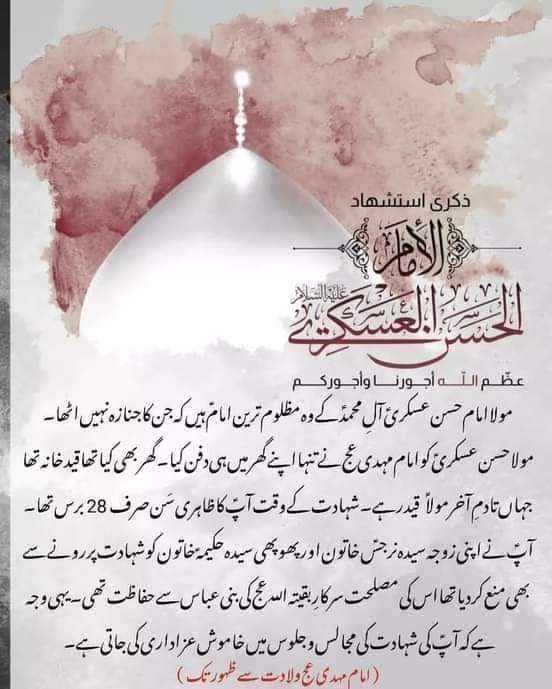 ذكرى استشهاد
الإمام
الحسن العسكري عليه السلام
عظّم اللّه أجورنا وأجوركم
مولا امام حسن عسکریؑ آلِ محمدؐ کے وہ مظلوم ترین امامؑ ہیں کہ جن کا جنازہ نہیں اٹھا۔
مولا حسن عسکریؑ کو امام مہدی عج نے تنہا اپنے گھر میں ہی دفن کیا۔ گھر بھی کیا تھا قید خانہ تھا
جہاں تادمِ آخر مولاؑ قید رہے۔ شہادت کے وقت آپؑ کا ظاہری سَن صرف 28 برس تھا۔
آپؑ نے اپنی زوجہ سیدہ نرجسؑ خاتون اور پھوپھی سیدہ حکیمہؑ خاتون کو شہادت پر رونے سے
بھی منع کر دیا تھا اس کی مصلحت سرکارِ بقیتہ اللہ عج کی بنی عباس سے حفاظت تھی۔ یہی وجہ
ہے کہ آپؑ کی شہادت کی مجالس و جلوس میں خاموش عزاداری کی جاتی ہے۔
( امام مہدی عج ولادت سے ظہور تک )